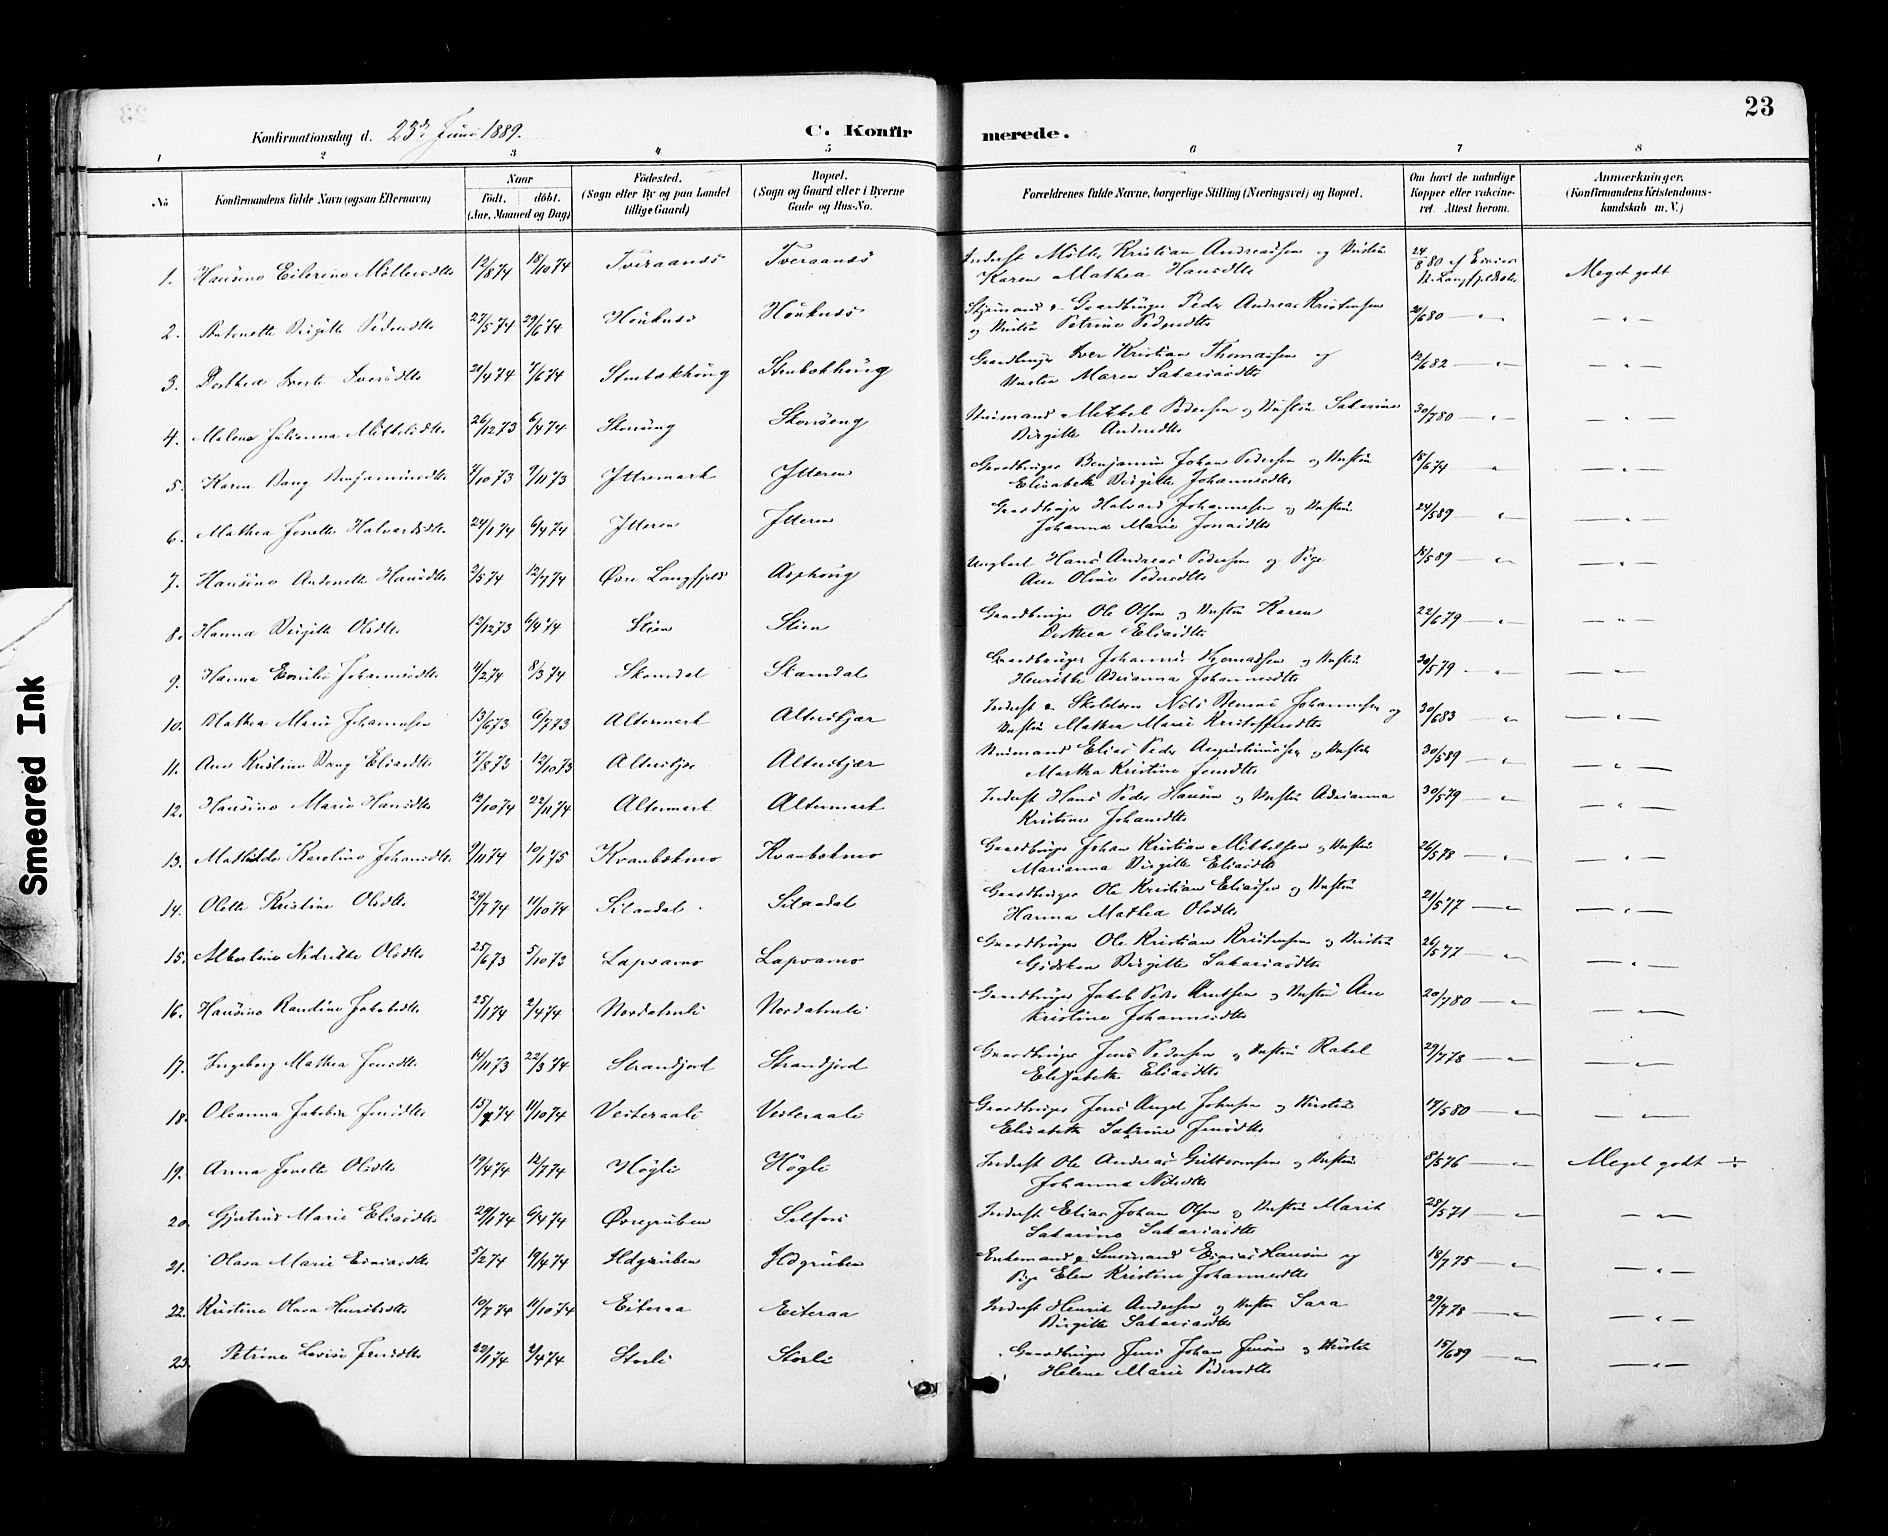 23
Konfirmationsdag d. 23de Juni 1889.
C. Konfirmerede.
1 2 3 4 5 6 7 8
No
Konfirmandens fulde Navn (ogsaa Efternavn)
Naar
Født. døbt.
(Aar, Maaned og Dag)
Fødested.
(Sogn eller By og paa Landet
tillige Gaard)
Bopæl.
(Sogn og Gaard eller i Byerne
Gade og Hus-No.
Forældrenes fulde Navne, borgerlige Stilling (Næringsvei) og Bopæl.
Om havt de naturlige
Kopper eller vaksine-
ret. Attest herom.
Anmerkninger,
(Konfirmandens Kristendoms-
kundskab m. V.)
1. Hansine Eilerine Möllersdtr 12/8 74 18/10 74 Tveraanes Tveraanes Inderst Möller Kristian Andreassen og Hustru
Karen Mathea Hansdtr 24/8 80 Meget godt
2. Antonette Birgitte Pedersdtr 27/5 74 29/6 74 Höuknes Höuknes Gaardbruger Peder Andreas Kristensen
og Hustru Petrine Pedersdtr /6 80 — " —
3. Dorthea Iverte Iversdtr 21/4 74 7/6 74 Stenbækhöug Stenbækhöug Gaardbruger Iver Kristian Thomassen og
Hustru Maren Sakariasdtr 12/6 82 — " —
4. Malene Julianna Mikkelsdtr 26/12 73 6/4 74 Skonseng Skonseng Mikkel Pedersen og Hustru Sakarine
Birgitte Andersdtr 30/7 80 — " —
5. Karen Bang Benjaminsdtr 7/10 73 9/11 73 Ytteremark Ytteren Gaardbruger Benjamin Johan Pedersen og Hustru
Elisabeth Birgitte Johannesdtr 18/6 74 — " —
6. Mathea Jonette Halvardsdtr 24/1 74 6/4 74 Ytteren Ytteren Gaardbruger Halvard Johannesen og Hustru
Johanna Marie Jonasdtr 24/5 89 — " —
7. Hansine Andenette Hansdtr 2/5 74 12/7 74 Øvre Langfjeld Asphöug Ungkarl Hans Andreas Pedersen og Pige
Ane Oline Pedersdtr 18/5 89 — " —
8. Hanna Birgitte Olsdtr 12/12 73 6/4 74 Stien Stien Gaardbruger Ole Olsen og Hustru Karen
Dorthea Eliasdtr 22/6 79 — " —
9. Hanna Emilie Johannesdtr /2 74 8/3 74 Skamdal Skamdal Gaardbruger Johannes Thomassen og Hustru
Henrikke Adrianna Johannesdtr 30/5 79 — " —
10. Mathea Marie Johannesen 13/6 73 6/7 73 Altermark Alterskjær Inderst Nils Johannesen og
Hustru Mathea Marie Kristoffersdtr 30/6 83 — " —
11. Ane Kristine Bang Eliasdtr 7/8 73 12/10 73 Alterskjær Alterskjær Elias Peder Augustinussen og Hustru
Martha Kristine Jensdtr 30/5 89 — " —
12. Hansine Marie Hansdtr 12/10 74 22/11 74 Altermark Altermark Inderst Hans Peder Hansen og Hustru Adrianna
Kristine Johansdtr 30/5 79 — " —
13. Mathilde Karoline Johansdtr 9/11 74 10/1 75 Kvanbækmo Kvanbækmo Gaardbruger Johan Kristian Mikkelsen og Hustru
Marianna Birgitte Eliasdtr 26/5 78 — " —
14. Olette Kristine Olsdtr 29/7 74 11/10 74 Silaadal Silaadal Gaardbruger Ole Kristian Eliassen og Hustru
Hanna Mathea Olsdtr 21/5 77 — " —
15. Albertine Nedrikke Olsdtr 25/6 73 5/10 73 Lapvamo Lapvamo Gaardbruger Ole Kristian Kristensen og Hustru
Gidsken Birgitte Sakariasdtr 26/5 77 — " —
16. Hansine Randine Jakobsdtr 25/1 74 2/4 74 Nordalmli Nordalmli Gaardbruger Jakob Peder Knutsen og Hustru Ane
Kristine Johannesdtr 20/7 80 — " —
17. Ingeborg Mathea Jensdtr 14/11 73 22/3 74 Strandjord Strandjord Gaardbruger Jens Pedersen og Hustru Rakel
Elisabeth Eliasdtr 29/7 78 — " —
18. Oleanna Jakobine Jensdtr 15/ 74 11/10 74 Vesteraali Vesteraali Gaardbruger Jens Angel Johnsen og Hustru
Elisabeth Sakrine Jensdtr 14/5 80 — " —
19. Anna Jonette Olsdtr 19/4 74 12/7 74 Högli Högli Inderst Ole Andreas Guttormsen og Hustru
Johanna Nilsdtr 8/5 76 Meget godt ÷
20. Gjertrud Marie Eliasdtr 29/1 74 6/4 74 Øvregruben Selfors Inderst Elias Johan Olsen og Hustru Marit
Sakarine Sakariasdtr 28/5 71 — " —
21. Olava Marie Esaiasdtr 5/2 74 19/4 74 Ildgruben Ildgruben Enkemand Esaias Hansen og
Pige Elen Kristine Johannesdtr 18/7 75 — " —
22. Kristine Olava Henriksdtr 10/7 74 11/10 74 Eiteraa Eiteraa Inderst Henrik Andersen og Hustru Sara
Birgitte Sakariasdtr 29/7 78 — " —
23. Petrine Lovise Jensdtr 22/1 74 2/4 74 Storli Storli Gaardbruger Jens Johan Jensen og Hustru
Helene Marie Pedersdtr 15/6 89 — " —
Smeared Ink